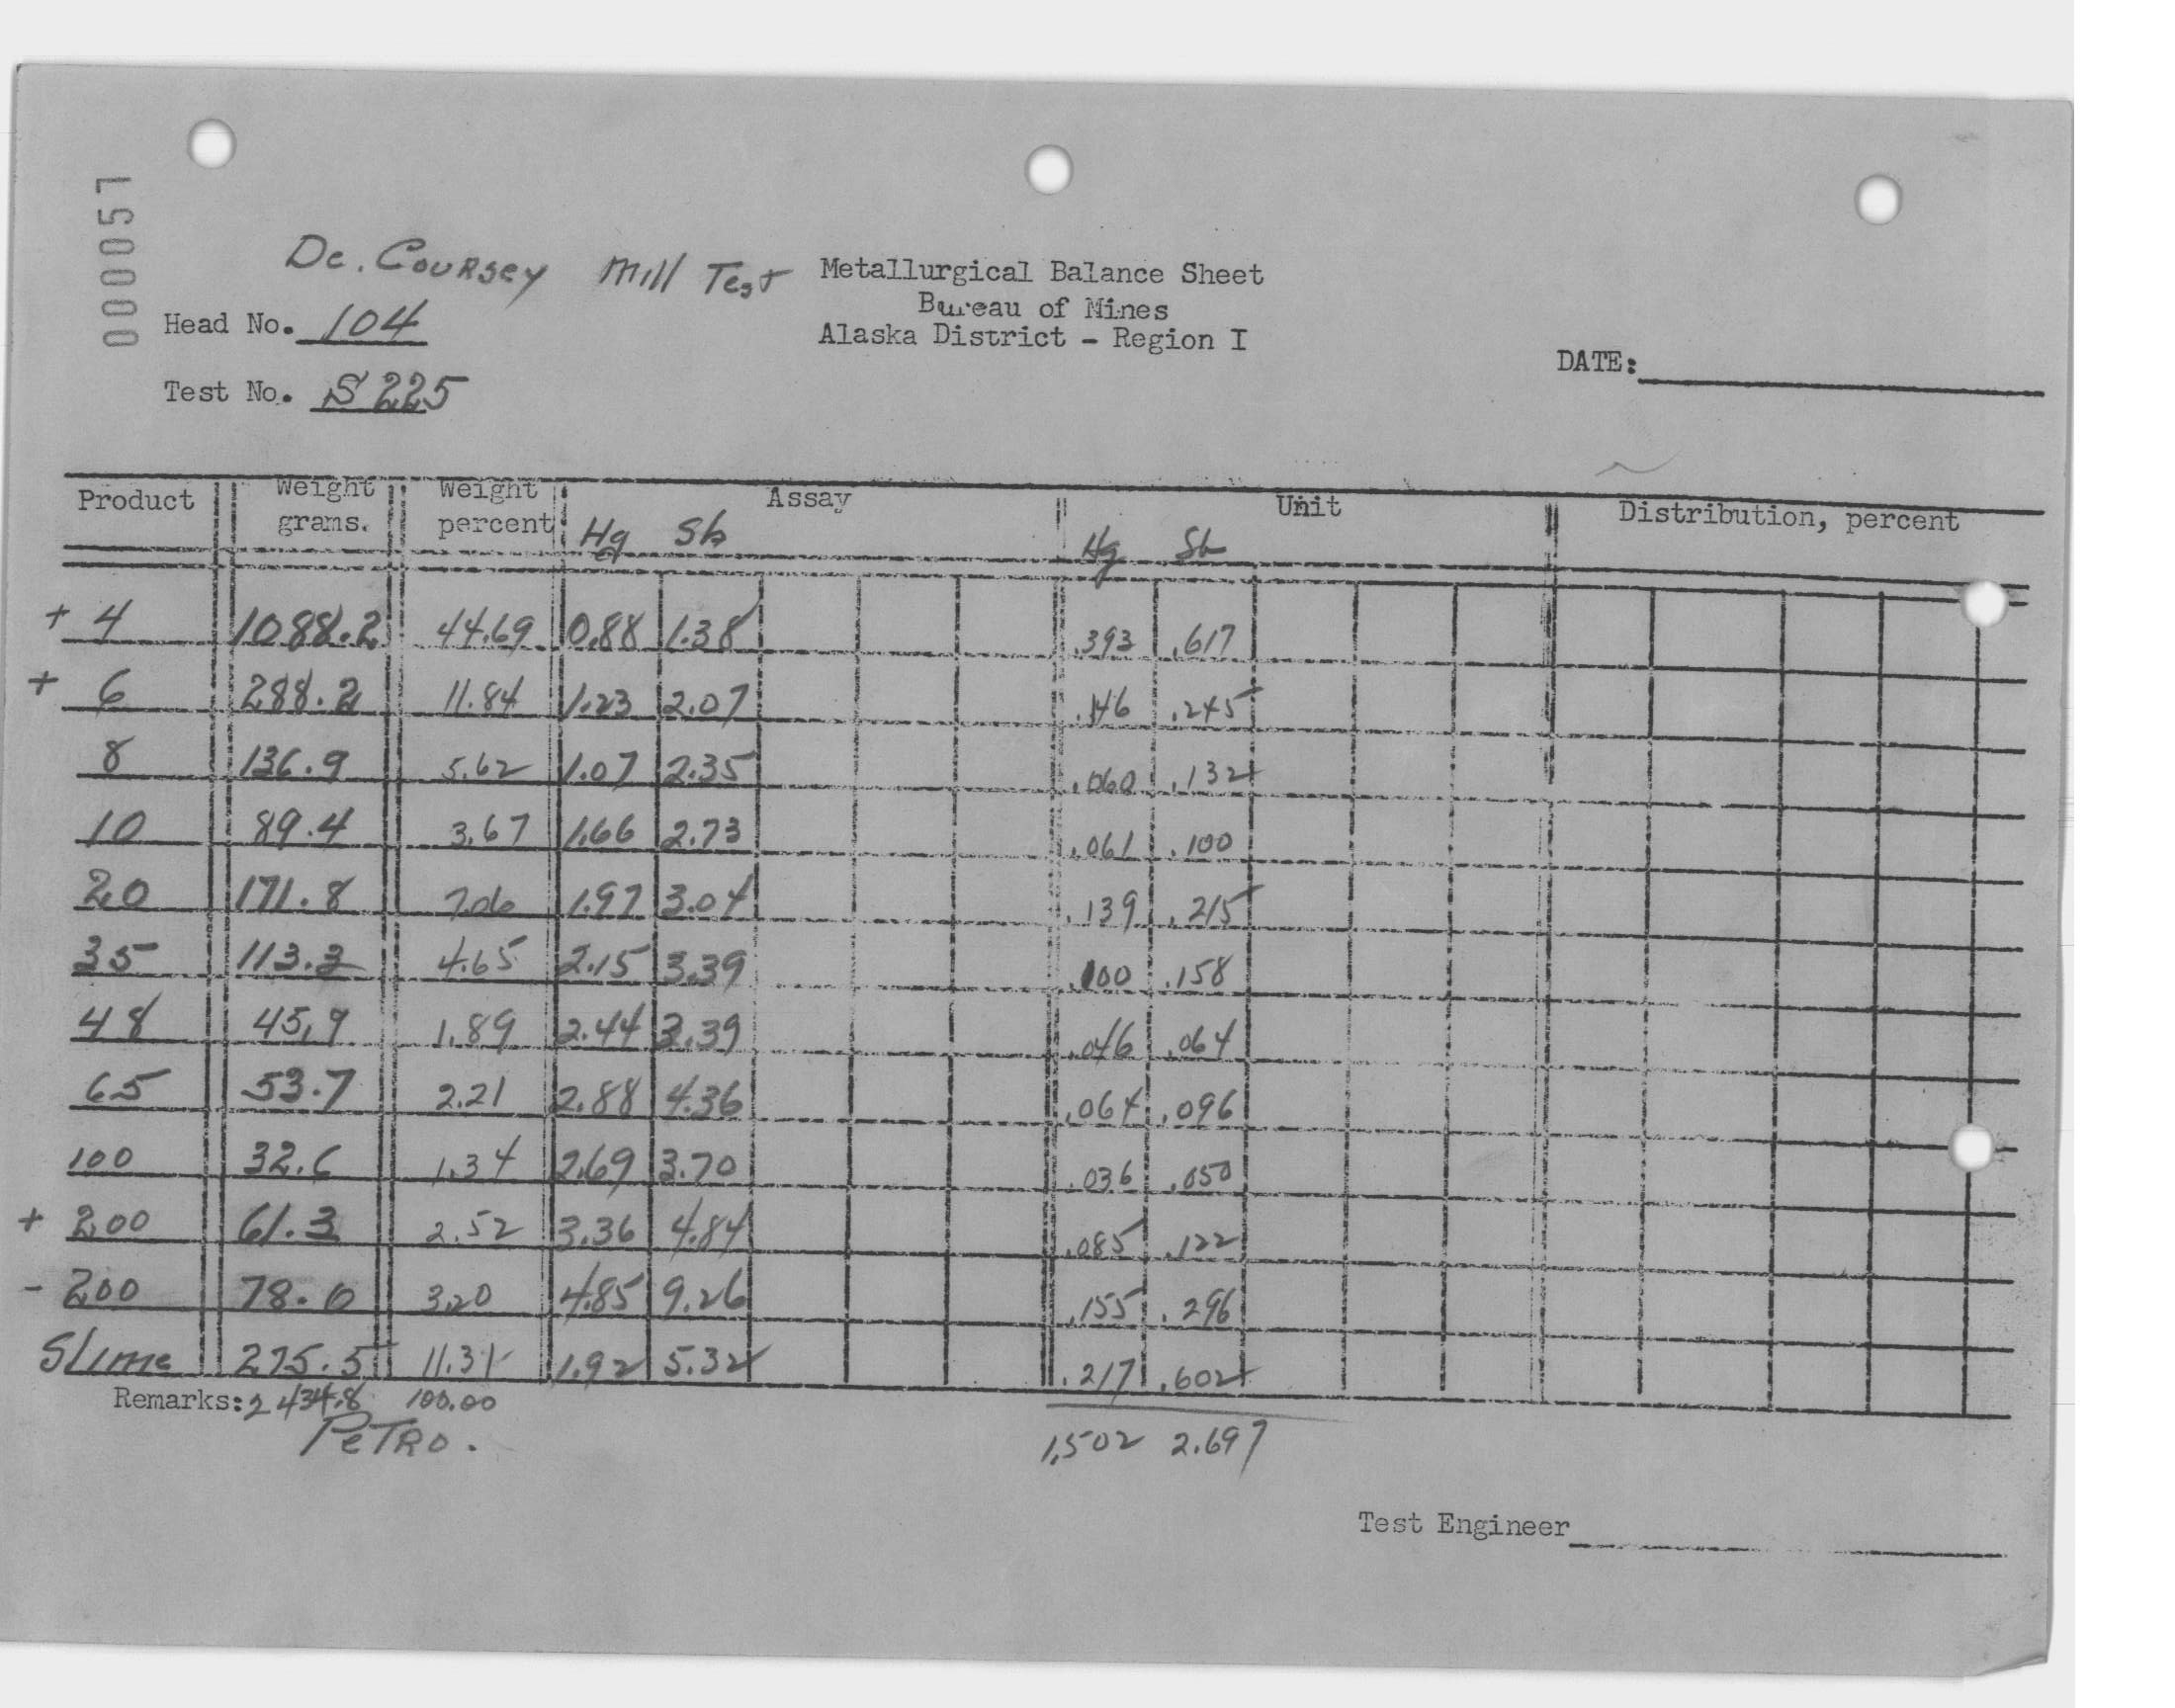 000057
De. Coursey Mill Test
Metallurgical Balance Sheet
Bureau of Mines
Alaska District - Region I
Head No. 104
DATE:
Test No. S 225
Product Weight grams. Weight percent Assay Unit Distribution, percent
Hg Sb Hg Sb
+ 4 1088.2 44.69 0.88 1.38 .393 .617
+ 6 288.2 11.84 1.23 2.07 .146 .245
8 136.9 5.62 1.07 2.35 .060 .132
10 89.4 3.67 1.66 2.73 .061 .100
20 171.8 7.06 1.97 3.04 .139 .215
35 113.3 4.65 2.15 3.39 .100 .158
48 45.9 1.89 2.44 3.39 .046 .064
65 53.7 2.21 2.88 4.36 .064 .096
100 32.6 1.34 2.69 3.70 .036 .050
+ 200 61.3 2.52 3.36 4.84 .085 .122
- 200 78.0 3.20 4.85 9.26 .155 .296
Slime 275.5 11.31 1.92 5.32 .217 .602
Remarks: 2434.8 100.00
PETRO.
1.502 2.697
Test Engineer